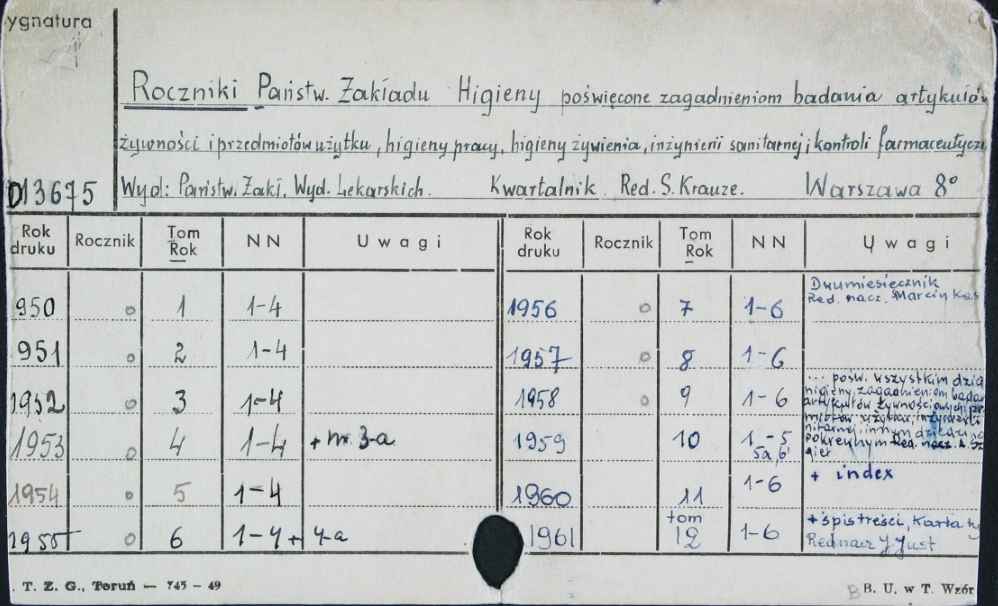 ygnatura
Roczniki Państw. Zakładu Higieny poświęcone zagadnieniom badania artykułów
żywności i przedmiotów użytku, higieny pracy, higieny żywienia, inżynierii sanitarnej i kontroli farmaceutyczn
D13675 Wyd: Państw. Zakł. Wyd. Lekarskich. Kwartalnik Red. S. Krauze. Warszawa 8°
Rok druku Rocznik Tom Rok N N Uwagi Rok druku Rocznik Tom Rok N N Uwagi
950 o 1 1-4 1956 o 7 1-6 Dwumiesięcznik Red. nacz. Marcin Kac
951 o 2 1-4 1957 o 8 1-6
1952 o 3 1-4 1958 o 9 1-6 ... pośw. wszystkim dzia
higieny, zagadnieniom bada
artykułów żywnościowych, prz
1953 o 4 1-4 + nr. 3-a 1959 10 1-5 5a, 6
pokrewnym Red. nacz. A. Sz
1954 o 5 1-4 1960 11 1-6 + index
1955 o 6 1-4 + 4-a 1961 tom 12 1-6 + spis treści, Karta ty
Red nacz J Just
. T. Z. G., Toruń — 745 - 49 B. U. w T. Wzór